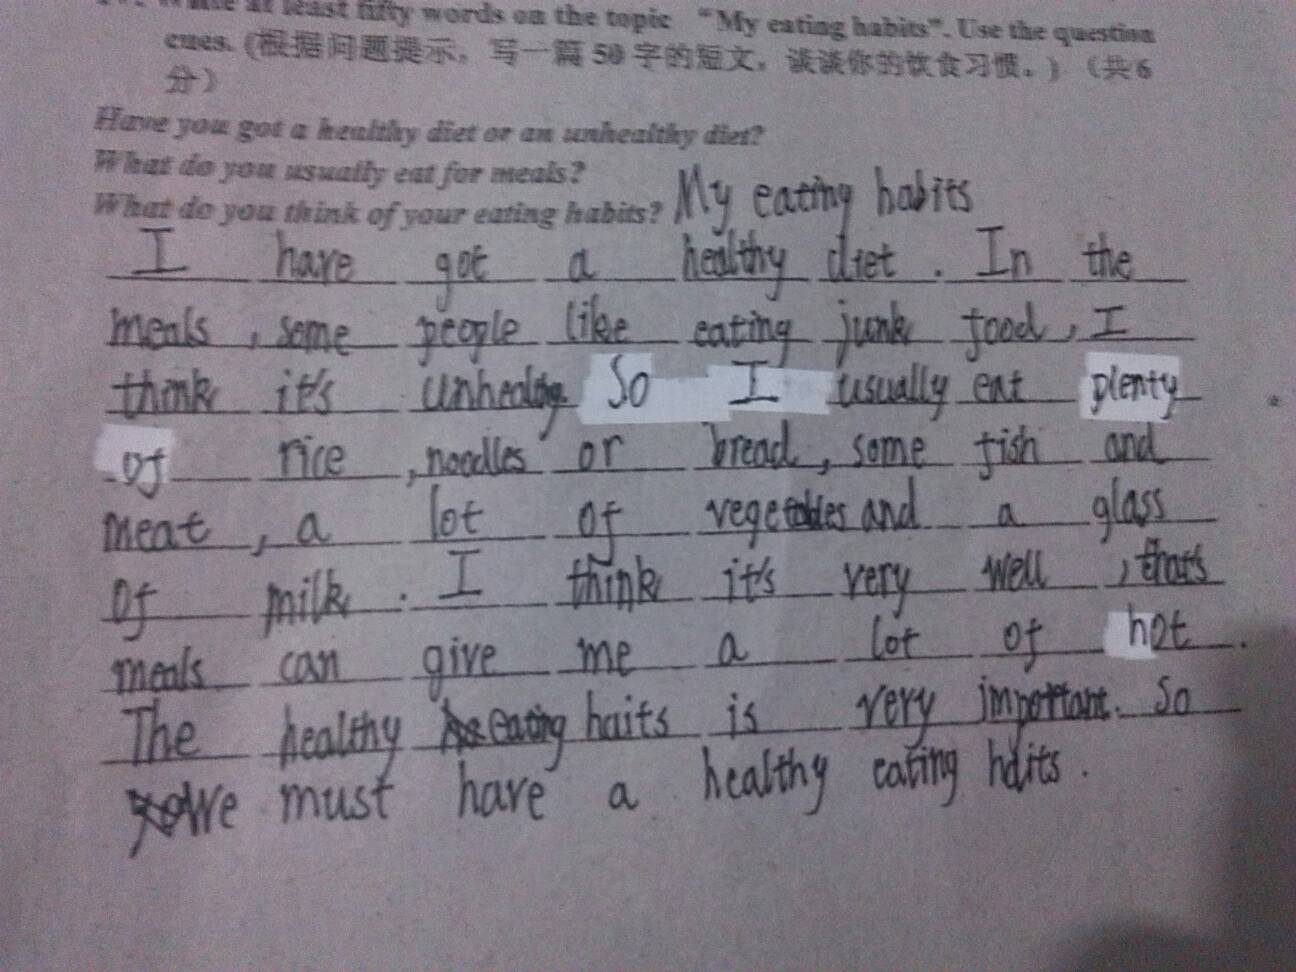 Write at least fifty words on the topic “My eating habits”. Use the question
cues. (根据问题提示，写一篇 50 字的短文，谈谈你的饮食习惯。) （共 6
分）
Have you got a healthy diet or an unhealthy diet?
What do you usually eat for meals?
What do you think of your eating habits? My eating habits
I have got a healthy diet. In the
meals, some people like eating junk food, I
think it's unhealthy. So I usually eat plenty
of rice, noodles or bread, some fish and
meat, a lot of vegetables and a glass
of milk. I think it's very well, that's
meals can give me a lot of hot.
The healthy eating haits is very important. So
We must have a healthy eating habits.